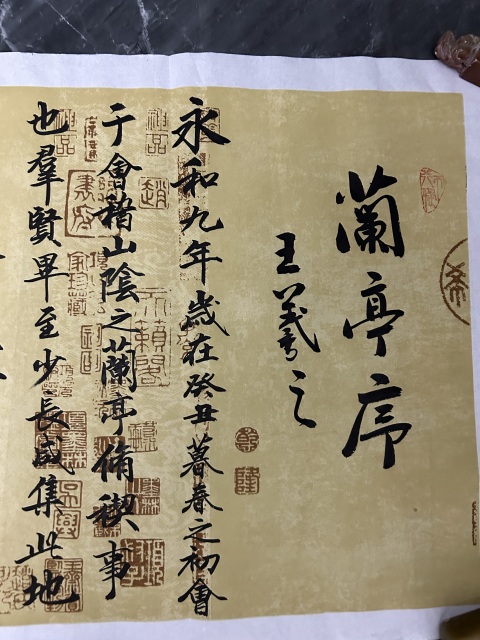 蘭亭序
王羲之
永和九年歲在癸丑暮春之初會
于會稽山陰之蘭亭脩稧事
也羣賢畢至少長咸集此地